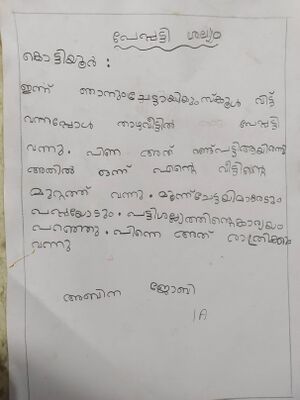 പേപ്പട്ടി ശല്യം
കൊട്ടിയൂർ :
ഇന്ന് ഞാനുംചേട്ടായിയുംസ്കൂൾ വിട്ട്
വന്നപ്പോൾ താഴവീട്ടിൽ പേപ്പട്ടി
വന്നു. പിണ അത് രണ്ട്പട്ടിആയിരുന്നു
അതിൽ ഒന്ന് എന്റെ വീട്ടിന്റെ
മുറ്റത്ത് വന്നു. മൂന്ന്ചേട്ടയിമാരേടും
പപ്പയോടും. പട്ടിശല്ല്യത്തിന്റെകാര്യം
പറഞ്ഞു. പിന്നെ അത് രാത്രിക്കും
വന്നു
അബിന ജോബി
1A